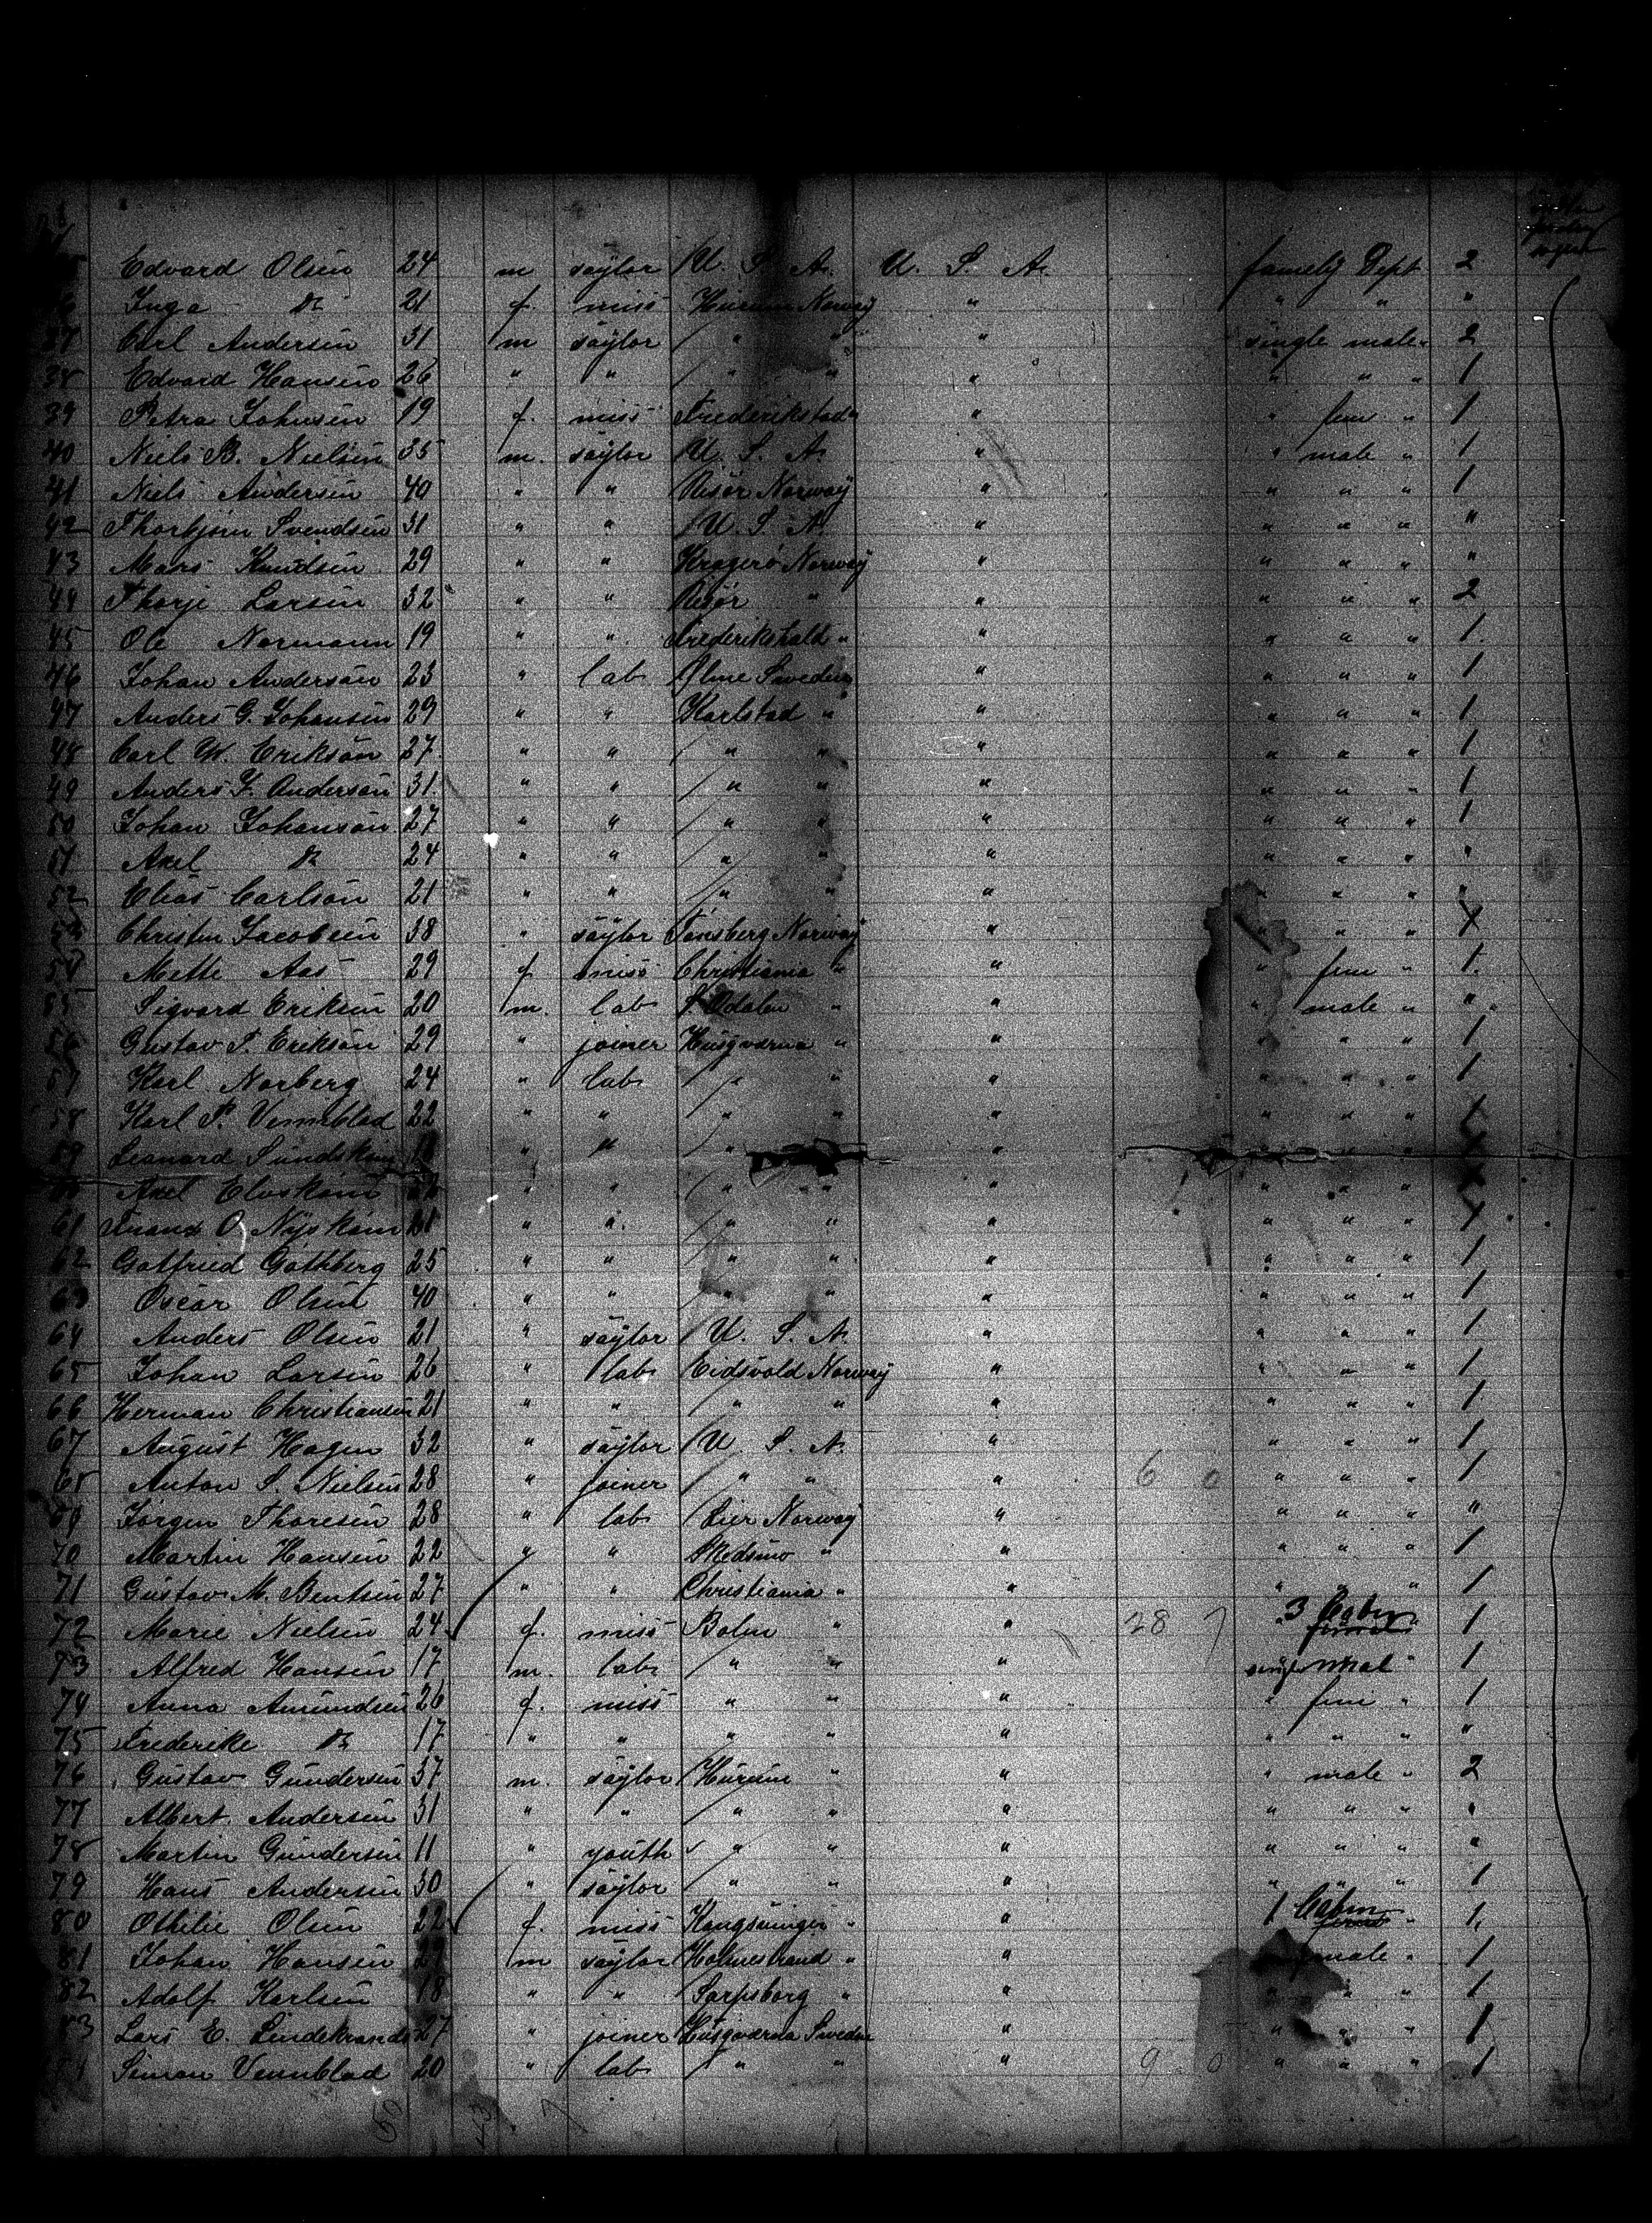 Edvard Olsen 24 m saylor U. S. A. U. S. A. famely Dept 2
Inga do 21 f. miss Hurum Norway " " " "
37 Carl Andersen 31 m saylor " " " single male " 2
38 Edvard Hansen 26 " " " " " " " " 1
39 Petra Johnsen 19 f. miss Frederikstad " " " fem " 1
40 Niels B. Nielsen 35 m. saylor U. S. A. " " male " 1
41 Niels Andersen 40 " " Risør Norway " " " " 1
42 Thorbjørn Svendsen 31 " " U. S. A. " " " " "
43 Mars Knudsen 29 " " Kragerø Norway " " " " "
44 Thorje Larsen 32 " " Risør " " " " " 2
45 Ole Normann 19 " " Frederikshald " " " " " 1.
46 Johan Anderson 23 " lab Ølme Sweden " " " " 1
47 Anders G. Johansen 29 " " Karlstad " " " " " 1
48 Carl M. Erikson 27 " " " " " " " " 1
49 Anders J. Anderson 31 " " " " " " " " 1
50 Johan Johanson 27 " " " " " " " " 1
51 Axel do 24 " " " " " " " " "
52 Elias Carlson 21 " " " " " " " " "
53 Christen Jacobsen 38 " saylor Tønsberg Norway " " " "
54 Mette Aas 29 f miss Christiania " " " fem " 1.
55 Sigvard Eriksen 20 m. lab S. Odalen " " " male " "
56 Gustav T. Erikson 29 " joiner Husqvarna " " " " " 1
57 Karl Norberg 24 " lab " " " " " " 1
58 Karl P. Vennblad 22 " " " " " " " "
59 Leonard " " " " " " " "
60 Axel " " " " " " " "
61 O. " " " " " " " "
62 Gotfried Gothberg 25 " " " " " " " " 1
63 Oscar Olsen 40 " " " " " " " " 1
64 Anders Olsen 21 " saylor U. S. A. " " " " 1
65 Johan Larsen 26 " lab Eidsvold Norway " " " " 1
66 Herman Christiansen 21 " " " " " " " " 1
67 August Hagen 32 " saylor U. S. A. " " " " 1
68 Anton S. Nielsen 28 " joiner " " " 6 0 " " " 1
69 Jørgen Thoresen 28 " lab Lier Norway " " " " "
70 Martin Hansen 22 " " Skedsmo " " " " " 1
71 Gustav M. Bentsen 27 " " Christiania " " " " " 1
72 Marie Nielsen 24 f. miss Bolen " " 28 7 3 Cabin 1
73 Alfred Hansen 17 m. lab " " " single mal " 1
74 Anna Amundsen 26 f. miss " " " " fem " 1
75 Frederike do 17 " " " " " " " " "
76 Gustav Gundersen 37 m. saylor Hurum " " " male " 2
77 Albert Andersen 31 " " " " " " " " "
78 Martin Gundersen 11 " youth " " " " " " "
79 Hans Andersen 30 " saylor " " " " " " 1
80 Othilie Olsen 22 f. miss Kongsvinger " " 1 Cabin " 1.
81 Johan Hansen m saylor Holmestrand " " male " 1
82 Adolf Karlsen 18 " " Sarpsborg " " " " 1
83 Lars E. 27 " joiner Husqvarna Sweden " " " " 1
Simon Vennblad 20 " lab " " " 9 0 " " " 1